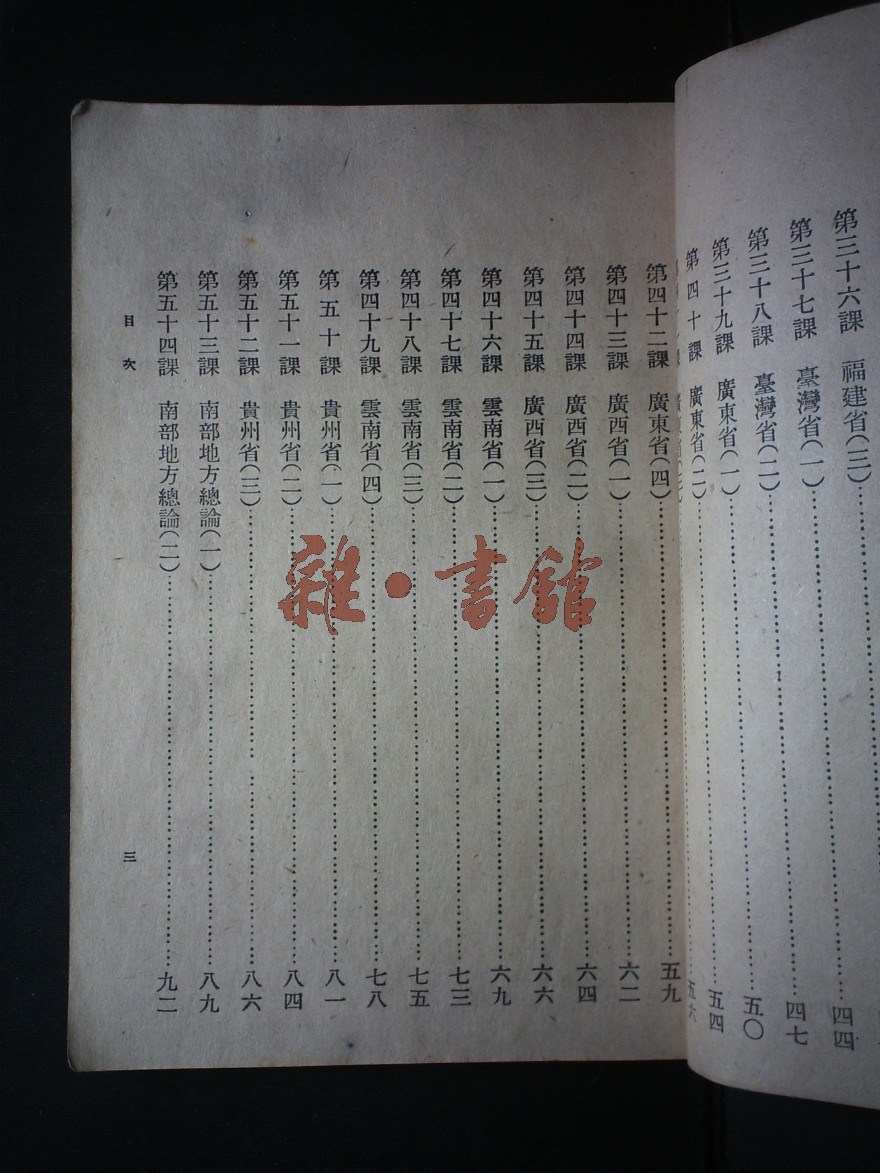 第三十六課 福建省(三)……四四
第三十七課 臺灣省(一)……四七
第三十八課 臺灣省(二)……五〇
第三十九課 廣東省(一)……五四
第四十課 廣東省(二)……五六
第四十二課 廣東省(四)……五九
第四十三課 廣西省(一)……六二
第四十四課 廣西省(二)……六四
第四十五課 廣西省(三)……六六
第四十六課 雲南省(一)……六九
第四十七課 雲南省(二)……七三
第四十八課 雲南省(三)……七五
第四十九課 雲南省(四)……七八
第五十課 貴州省(一)……八一
第五十一課 貴州省(二)……八四
第五十二課 貴州省(三)……八六
第五十三課 南部地方總論(一)……八九
第五十四課 南部地方總論(二)……九二
目次
三
雜·書館